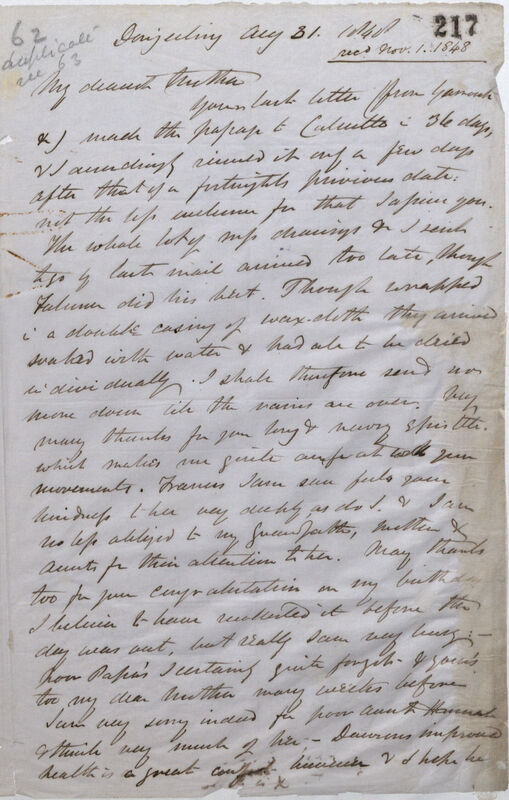 62
duplicate
see 63
217
Dorjeeling Aug 31. 1848
recd Nov. 1. 1848
My dearest Mother
Your last letter (from Yarmouth
& ) made the passage to Calcutta in 36 days,
& I accordingly received it only a few days
after that of a fortnights previous date:
not the less welcome for that I assure you.
The whole lot of mss drawings & I send
to go by last mail arrived too late, though
Falconer did his best. Though wrapped
in a double casing of wax-cloth they arrived
soaked with water & had all to be dried
individually. I shall therefore send no
more down till the rains are over. Very
many thanks for your long & newsy epistle.
which makes me quite au fait with your
movements. Frances I am sure feels your
kindness to her very deeply as do I. & I am
no less obliged to my Grandfather, Mother &
Aunts for their attention to her. Many thanks
too for your congratulation on my birthday
I believe to have recollected it before the
day was out, but really I am very busy:—
poor Papa's I certainly quite forgot & yours
too my dear Mother many weeks before
I am very sorry indeed for poor Aunt Hannah
& think very much of her,— Dawsons improved
health is a great comfort however & I hope he